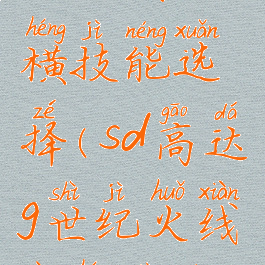 héng jì néng xuǎn
横技能选
zé gāo dá
择(sd高达
shì jì huǒ xiàn
9世纪火线